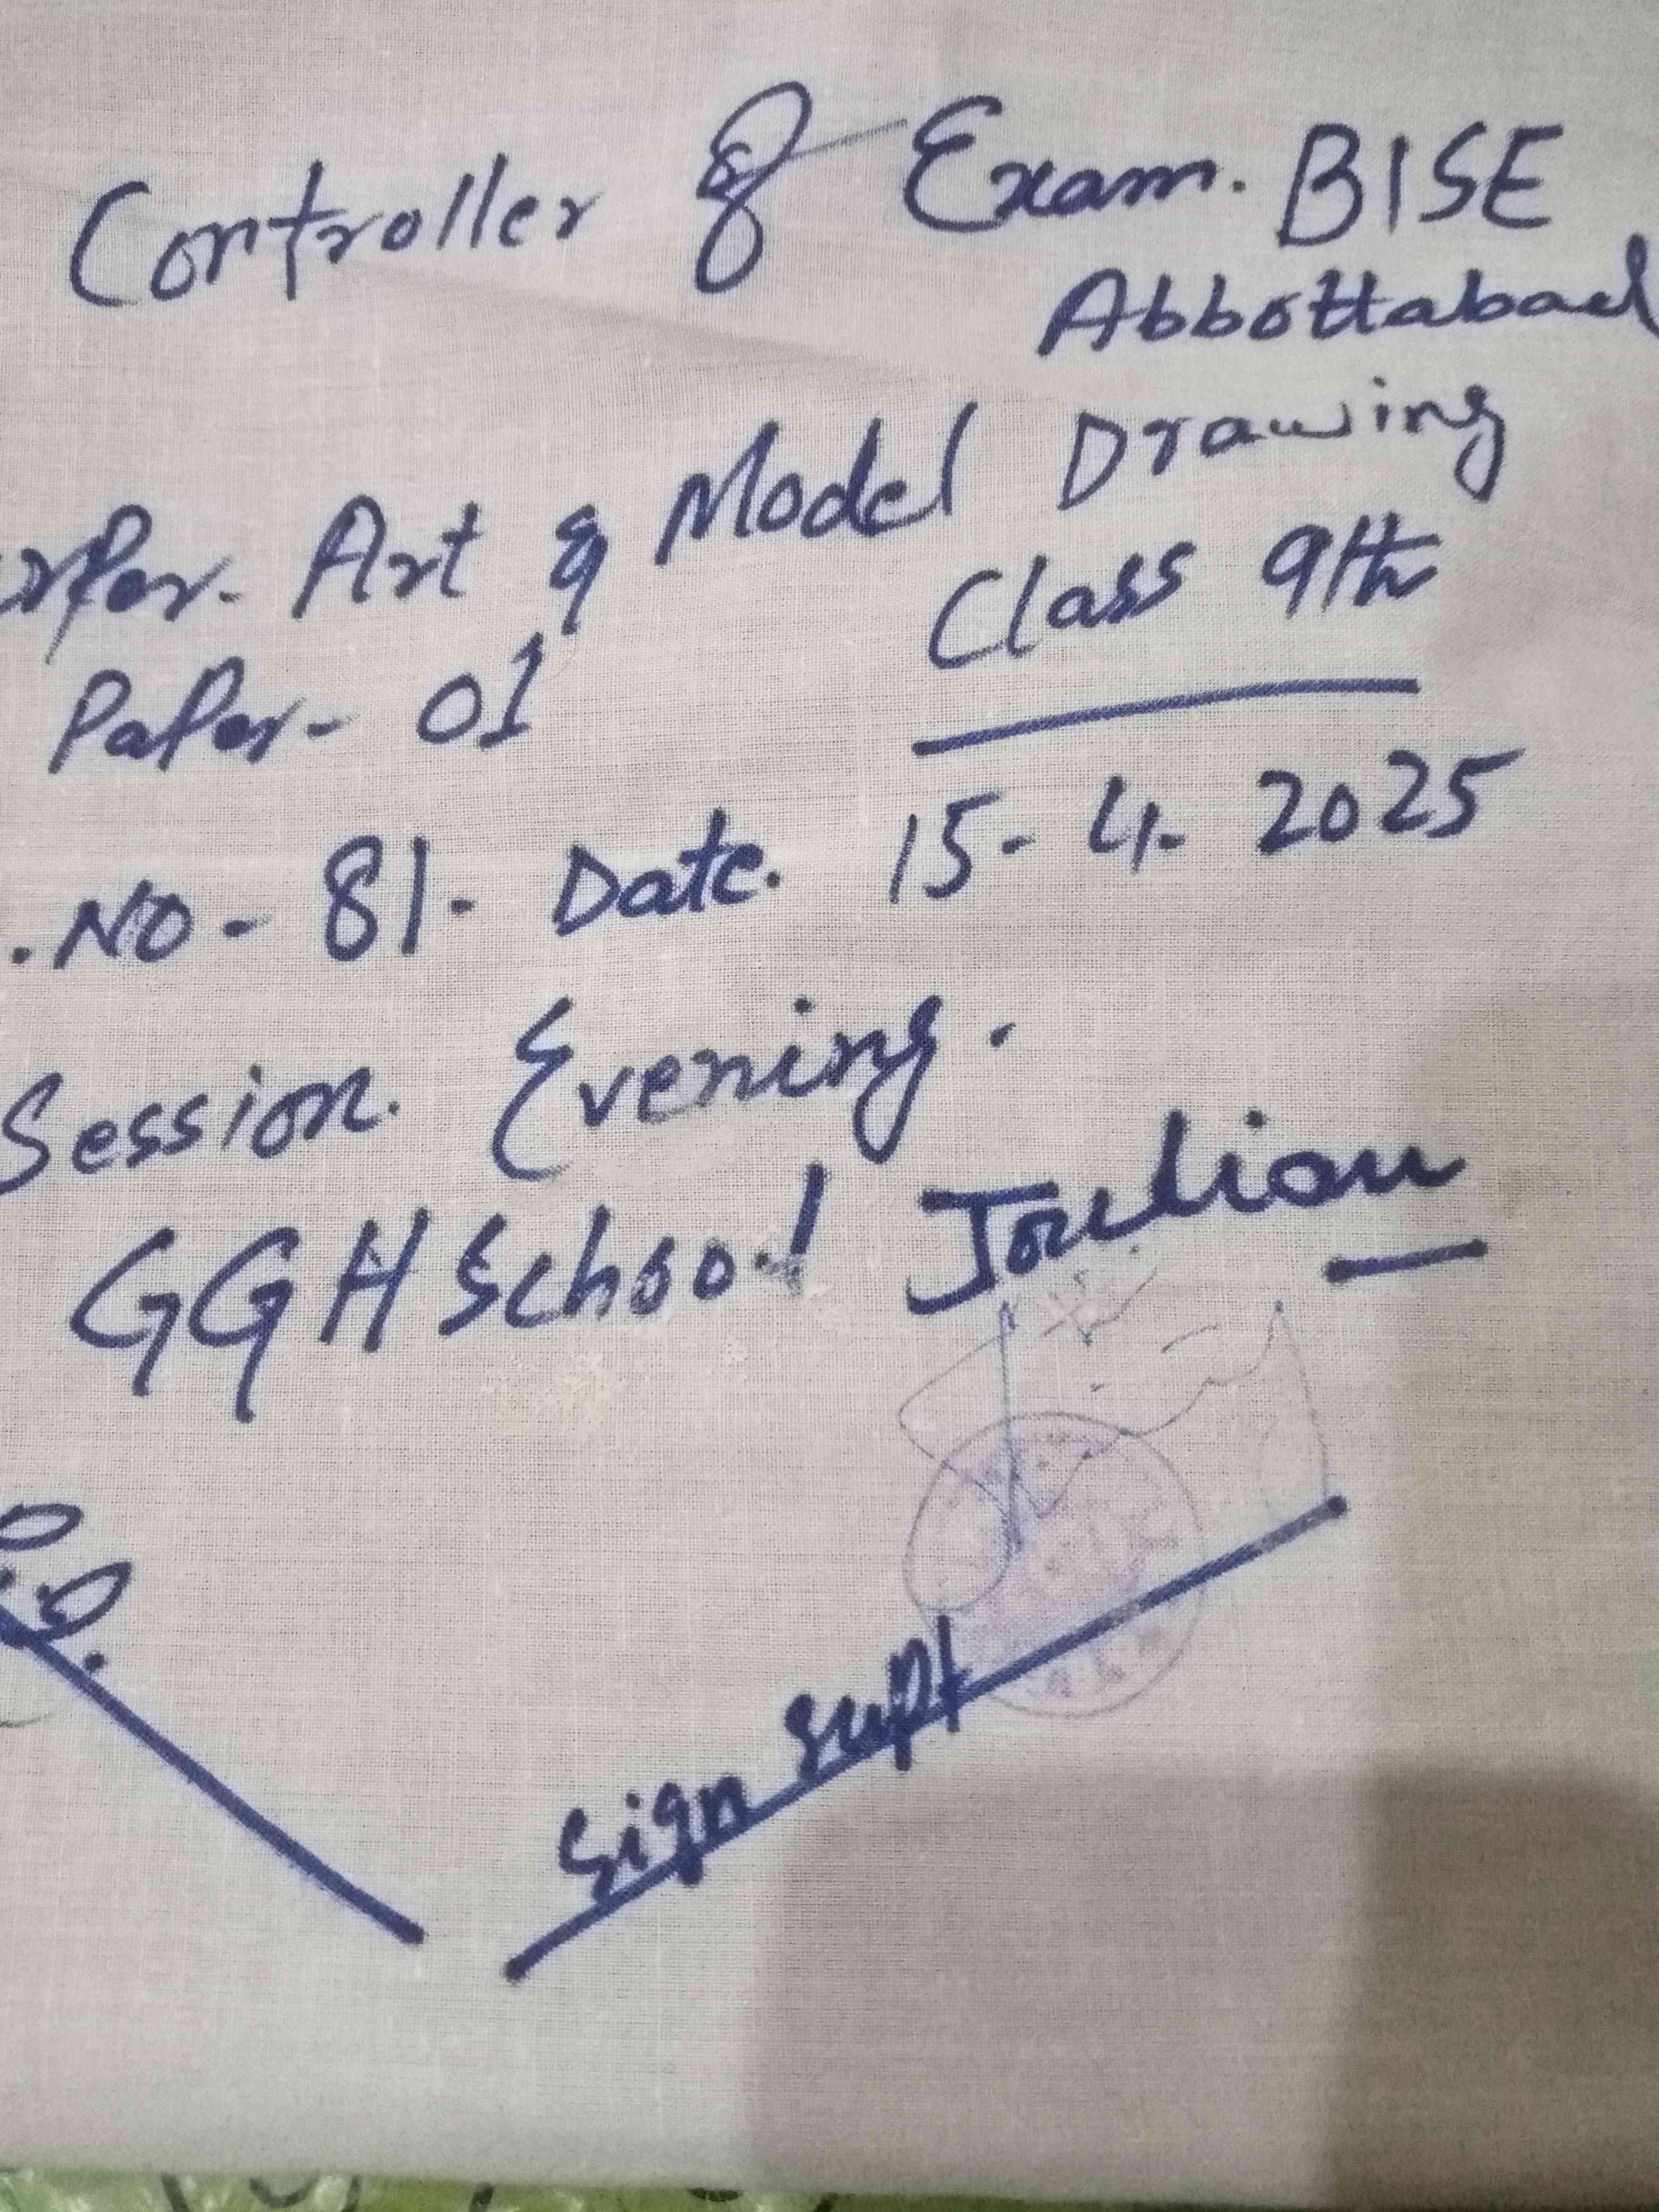 Controller of Exam. BISE
Abbottabad
Art & Model Drawing
Class 9th
Paper- 01
.No - 81- Date. 15-4-2025
Session. Evening.
GGHSchool Joulian
Sign Supt